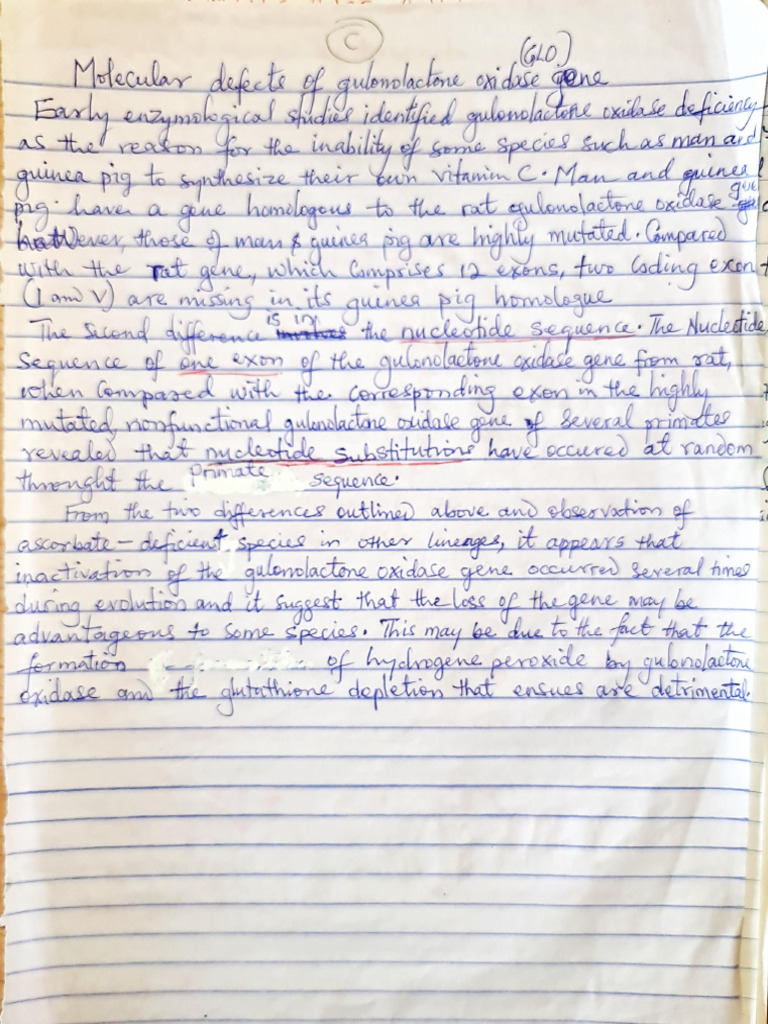 C
(GLO)
Molecular defects of gulonolactone oxidase gene
Early enzymological studies identified gulonolactone oxidase deficiency
as the reason for the inability of some species such as man and
guinea pig to synthesize their own vitamin C. Man and guinea
pig have a gene homologous to the rat gulonolactone oxidase gene
however, those of man & guinea pig are highly mutated. Compared
with the rat gene, which comprises 12 exons, two coding exon
(I and V) are missing in its guinea pig homologue
The second difference is in the nucleotide sequence. The Nucleotide
sequence of one exon of the gulonolactone oxidase gene from rat,
when compared with the corresponding exon in the highly
mutated, nonfunctional gulonolactone oxidase gene of several primates
revealed that nucleotide substitutions have occured at random
throught the primate sequence.
From the two differences outlined above and observation of
ascorbate-deficient species in other lineages, it appears that
inactivation of the gulonolactone oxidase gene occurred several times
during evolution and it suggest that the loss of the gene may be
advantageous to some species. This may be due to the fact that the
formation of hydrogene peroxide by gulonolactone
oxidase and the glutathione depletion that ensues are detrimental.